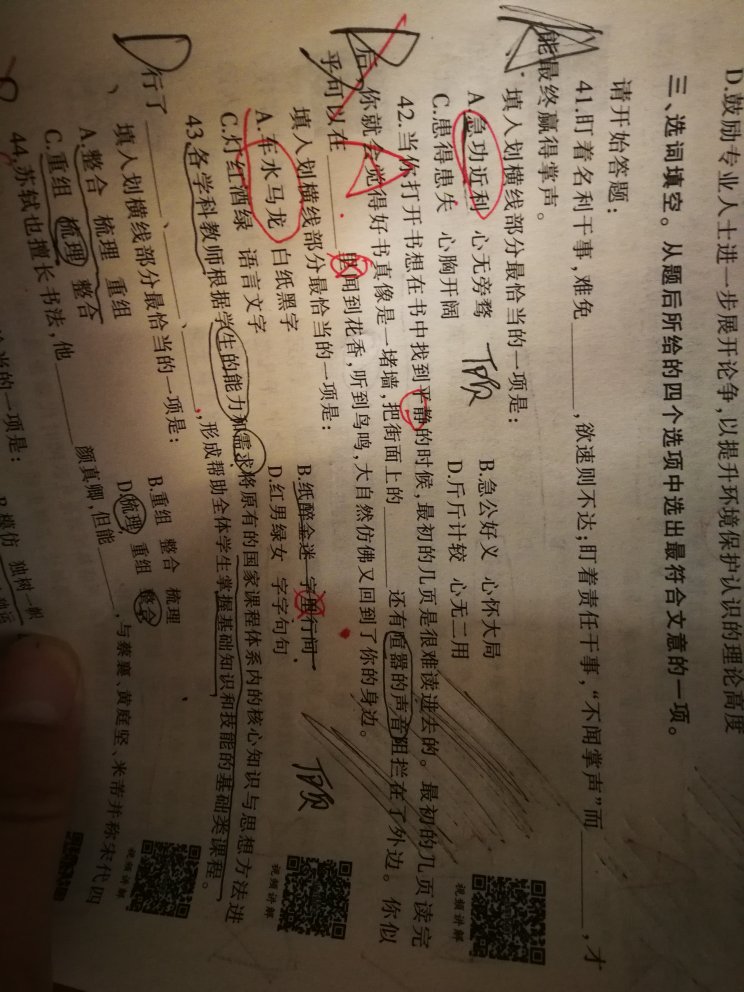 D.鼓励专业人士进一步展开论争,以提升环境保护认识的理论高度
三、选词填空。从题后所给的四个选项中选出最符合文意的一项。
请开始答题:
41.盯着名利干事,难免________,欲速则不达;盯着责任干事,“不闻掌声”而________,才
能最终赢得掌声。
填入划横线部分最恰当的一项是:
A.急功近利 心无旁骛 B.急公好义 心怀大局
C.患得患失 心胸开阔 D.斤斤计较 心无二用
42.当你打开书想在书中找到平静的时候,最初的几页是很难读进去的。最初的几页读完
后,你就会觉得好书真像是一堵墙,把街面上的________还有喧嚣的声音阻拦在了外边。你似
乎可以在________里闻到花香,听到鸟鸣,大自然仿佛又回到了你的身边。
填入划横线部分最恰当的一项是:
A.车水马龙 白纸黑字 B.纸醉金迷 字里行间
C.灯红酒绿 语言文字 D.红男绿女 字字句句
43.各学科教师根据学生的能力和需求将原有的国家课程体系内的核心知识与思想方法进
行了________、________、________,形成帮助全体学生掌握基础知识和技能的基础类课程。
填入划横线部分最恰当的一项是:
A.整合 梳理 重组 B.重组 整合 梳理
C.重组 梳理 整合 D.梳理 重组 整合
44.苏轼也擅长书法,他________颜真卿,但能________,与蔡襄、黄庭坚、米芾并称宋代四
当的一项是:
B.模仿 独树一帜
D
D
视频讲解
视频讲解
视频讲解